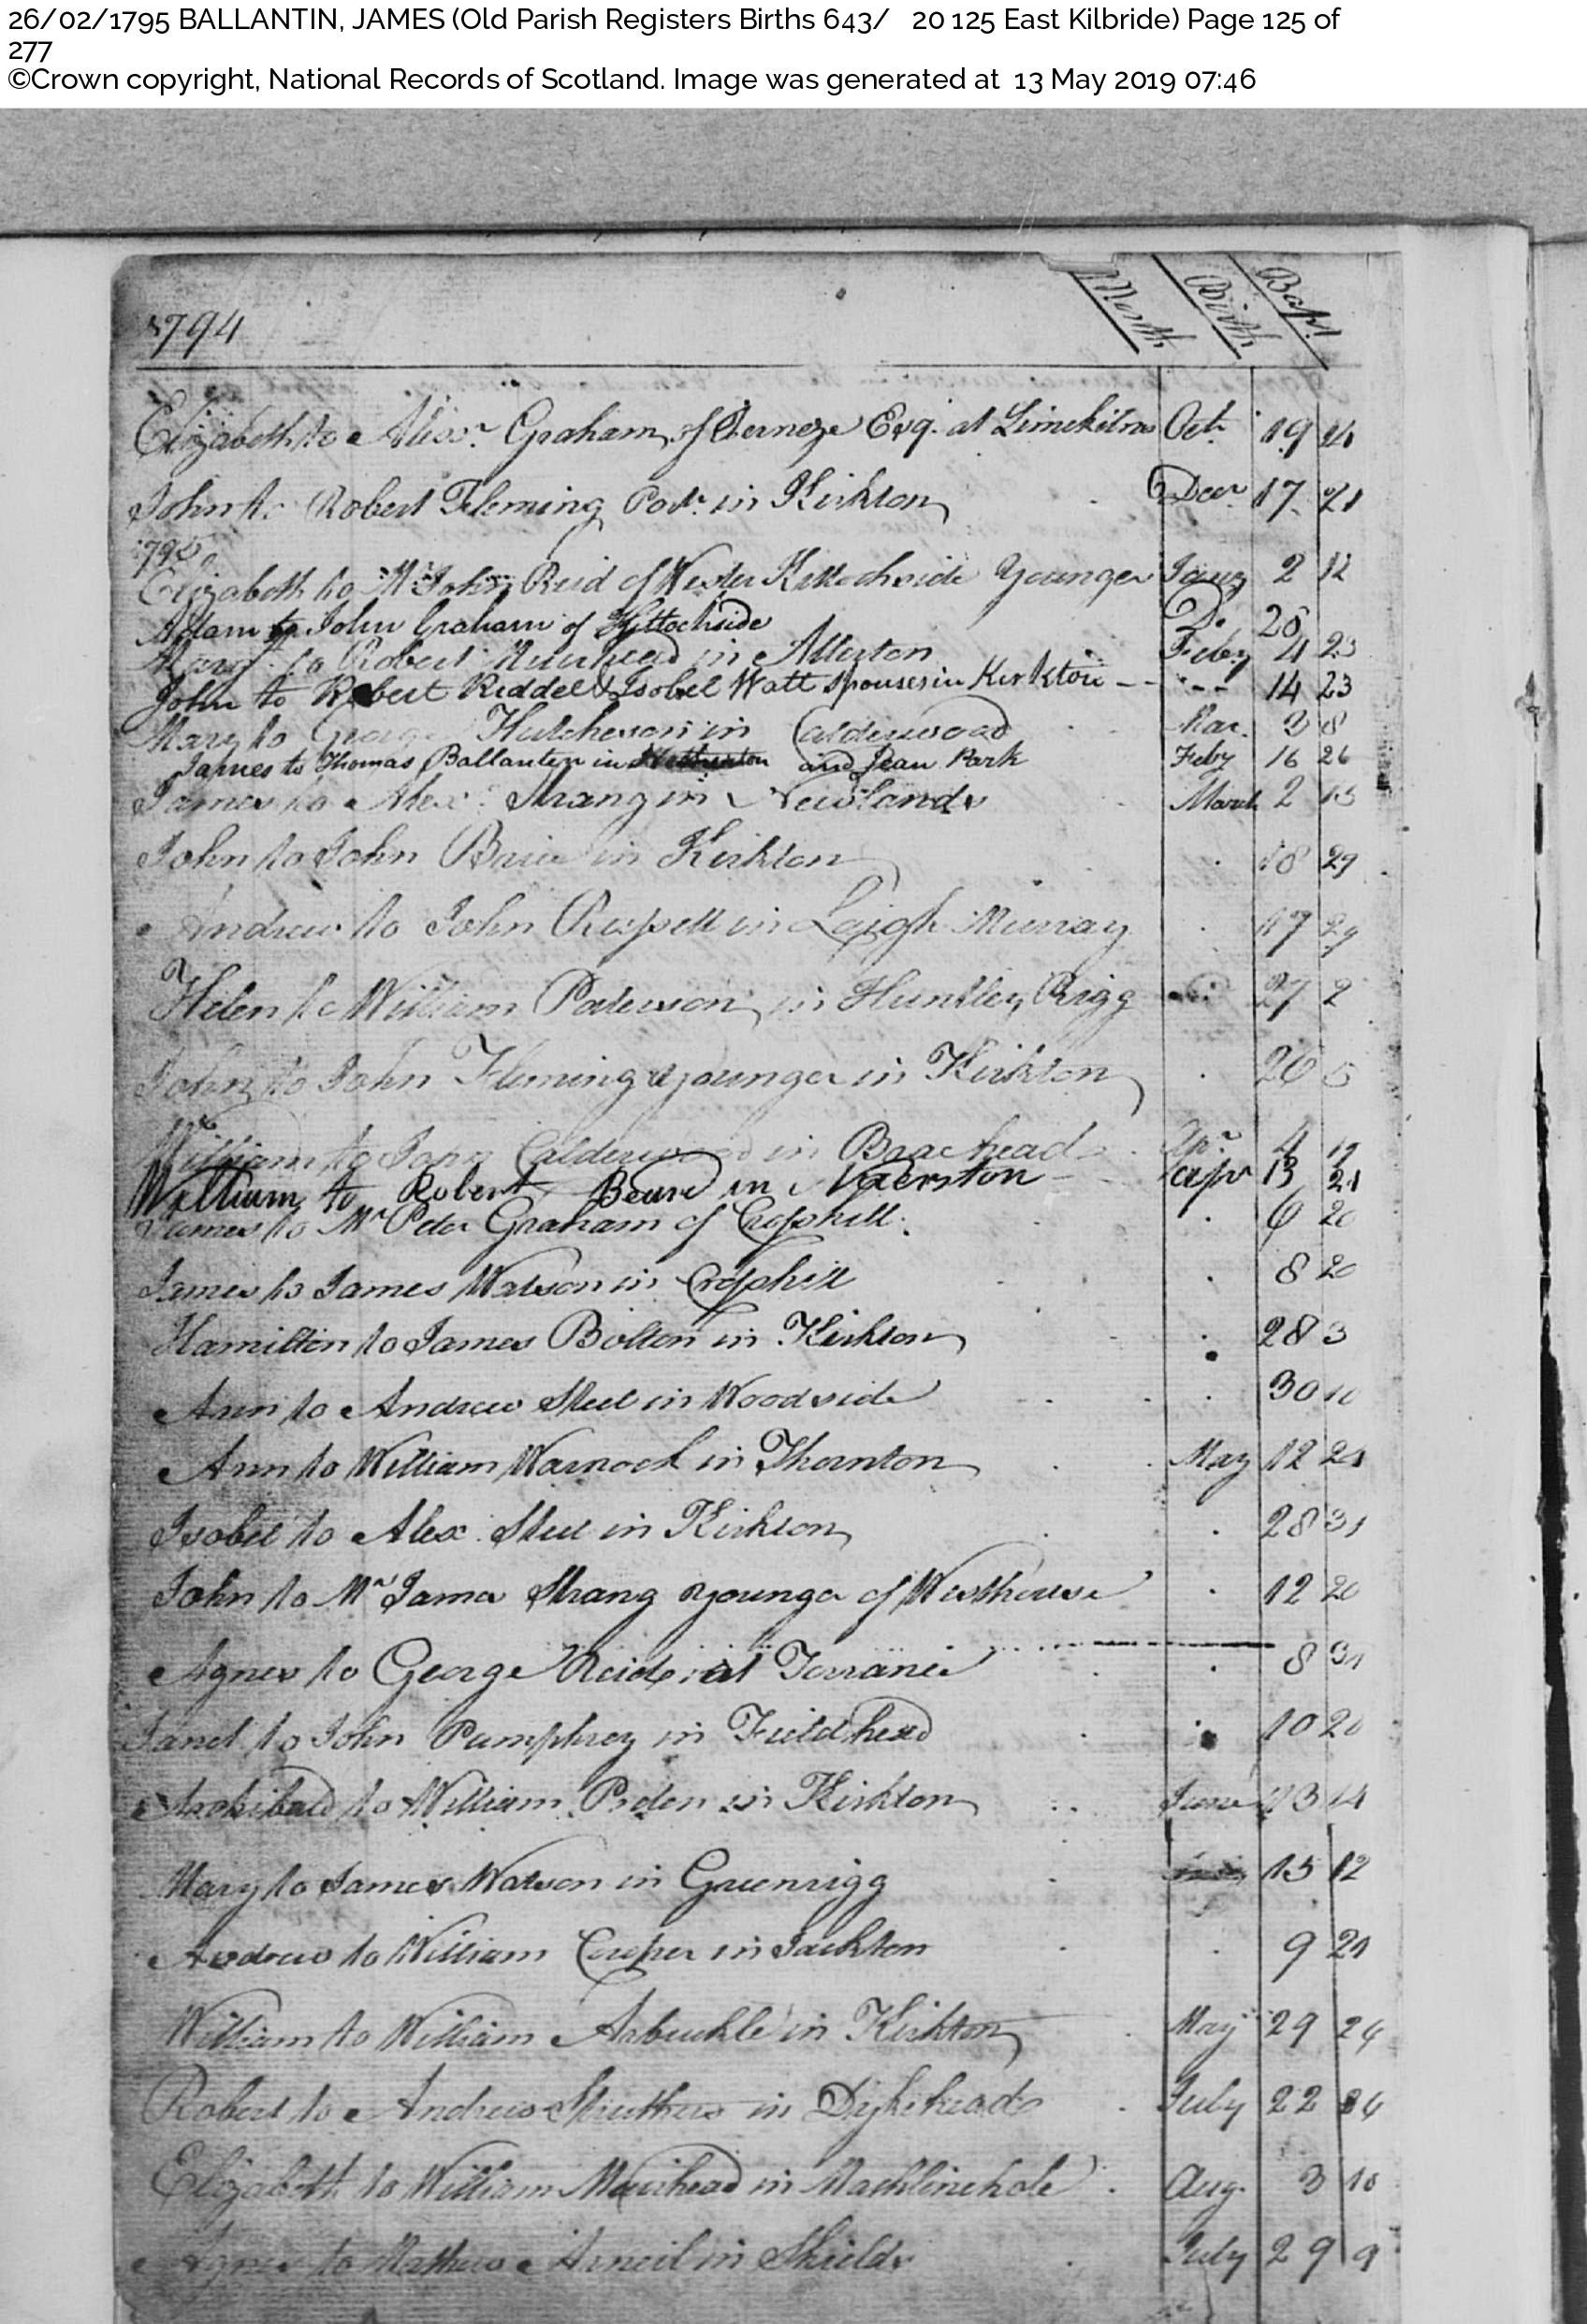 26/02/1795 BALLANTIN, JAMES (Old Parish Registers Births 643/ 20 125 East Kilbride) Page 125 of
277
©Crown copyright, National Records of Scotland. Image was generated at 13 May 2019 07:46
1794 Month Birth Bapt
Elizabeth to Alexr Graham of Esqr at Limekilns Octr 19
John to Robert Fleming in Kirkton Decr 17 21
1795
Elizabeth to Mr John Reid of Wester Kittochside Younger Jany 2 12
Adam to John Graham of Kittochside Do 20
to Robert Muirhead in Allerton Feby 4 23
John to Robert Riddel & Isobel Watt spouses in Kirkton -- 14 23
Mary to George Hutcheson in Calderwood Mar. 3 8
James to Thomas Ballantin in and Jean Park Feby 16 26
James to Alexr Strang in Newlands March 2 15
John to John in Kirkton 18 29
Andrew to John Russell in Laigh Murray 17 29
Helen to William Paterson in Huntley Rigg 27 2
John to John Fleming younger in Kirkton 26 5
William to Calderwood in Braehead Apr 4 19
William to Robert in Nerston Apr 13 21
James to Mr Peter Graham of Crosshill 6 20
James to James Watson in Crosshill 8 20
Hamilton to James Bolton in Kirkton 28 3
Ann to Andrew Steel in Woodside 30 10
Ann to William Warnock in Thornton May 12 21
Isobel to Alex. Steel in Kirkton 28 31
John to Mr James Strang younger of Westhouse 12 20
Agnes to George Reid at Torrance 8 31
Janet to John Pumphrey in Fieldhead 10 20
Archibald to William Peden in Kirkton June 13 14
Mary to James Watson in Greenrigg 15 12
Andrew to William Couper in Jackton 9 21
William to William Arbuckle in Kirkton May 29 24
Robert to Andrew Struthers in Dykehead July 22 26
Elizabeth to William Muirhead in Machlinehole Aug. 3 10
Agnes to Mathew Arneil in Shields July 29 9